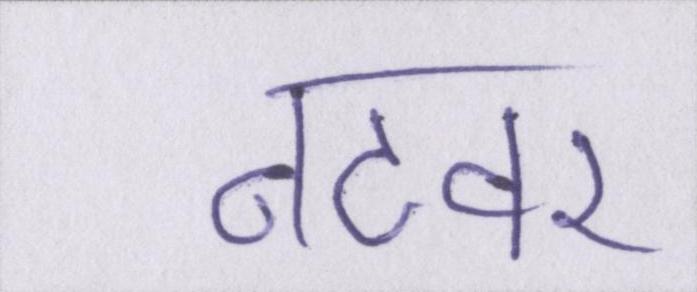 नटवर